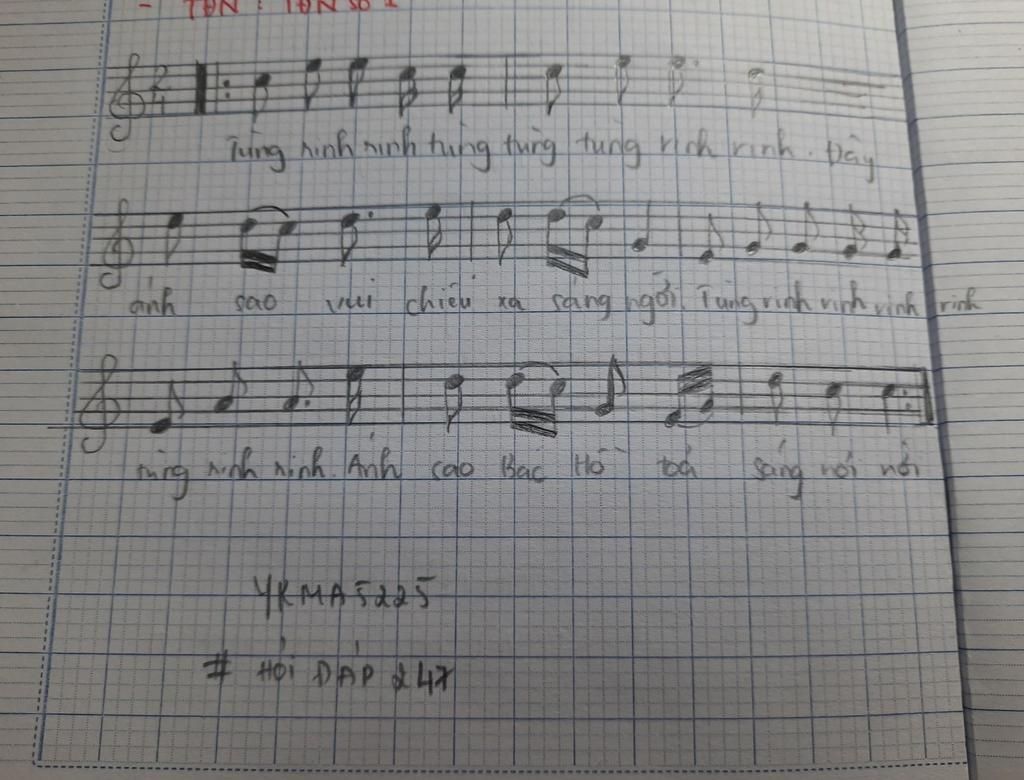 - TĐN : TĐN số 1
2
4
Tùng rinh rinh tùng tùng tùng rinh rinh. Đây
ánh sao vui chiếu xa sáng ngời. Tùng rinh rinh rinh rinh
tùng rinh rinh. Ánh sao Bác Hồ toả sáng nơi nơi
YKMA5225
# HỎI ĐÁP 247